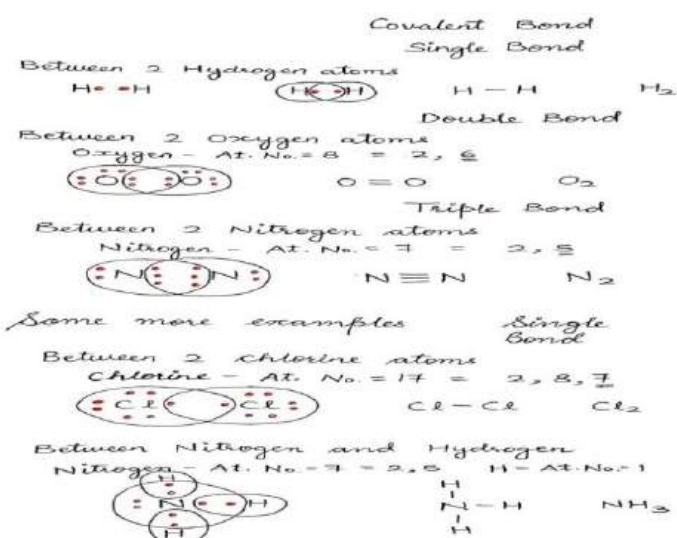 Covalent Bond
Single Bond
Between 2 Hydrogen atoms
H H H H H – H H₂
Double Bond
Between 2 Oxygen atoms
Oxygen – At. No. = 8 = 2, 6
O O O = O O₂
Triple Bond
Between 2 Nitrogen atoms
Nitrogen – At. No. = 7 = 2, 5
N N N ≡ N N₂
Some more examples Single
Bond
Between 2 chlorine atoms
Chlorine – At. No. = 17 = 2, 8, 7
Cl Cl Cl – Cl Cl₂
Between Nitrogen and Hydrogen
Nitrogen – At. No – 7 = 2, 5 H – At. No. – 1
H H
N H N – H NH₃
H H